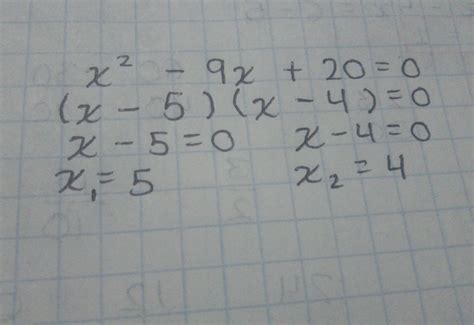 x² - 9x + 20 = 0
(x - 5) (x - 4) = 0
x - 5 = 0 x - 4 = 0
x₁ = 5 x₂ = 4